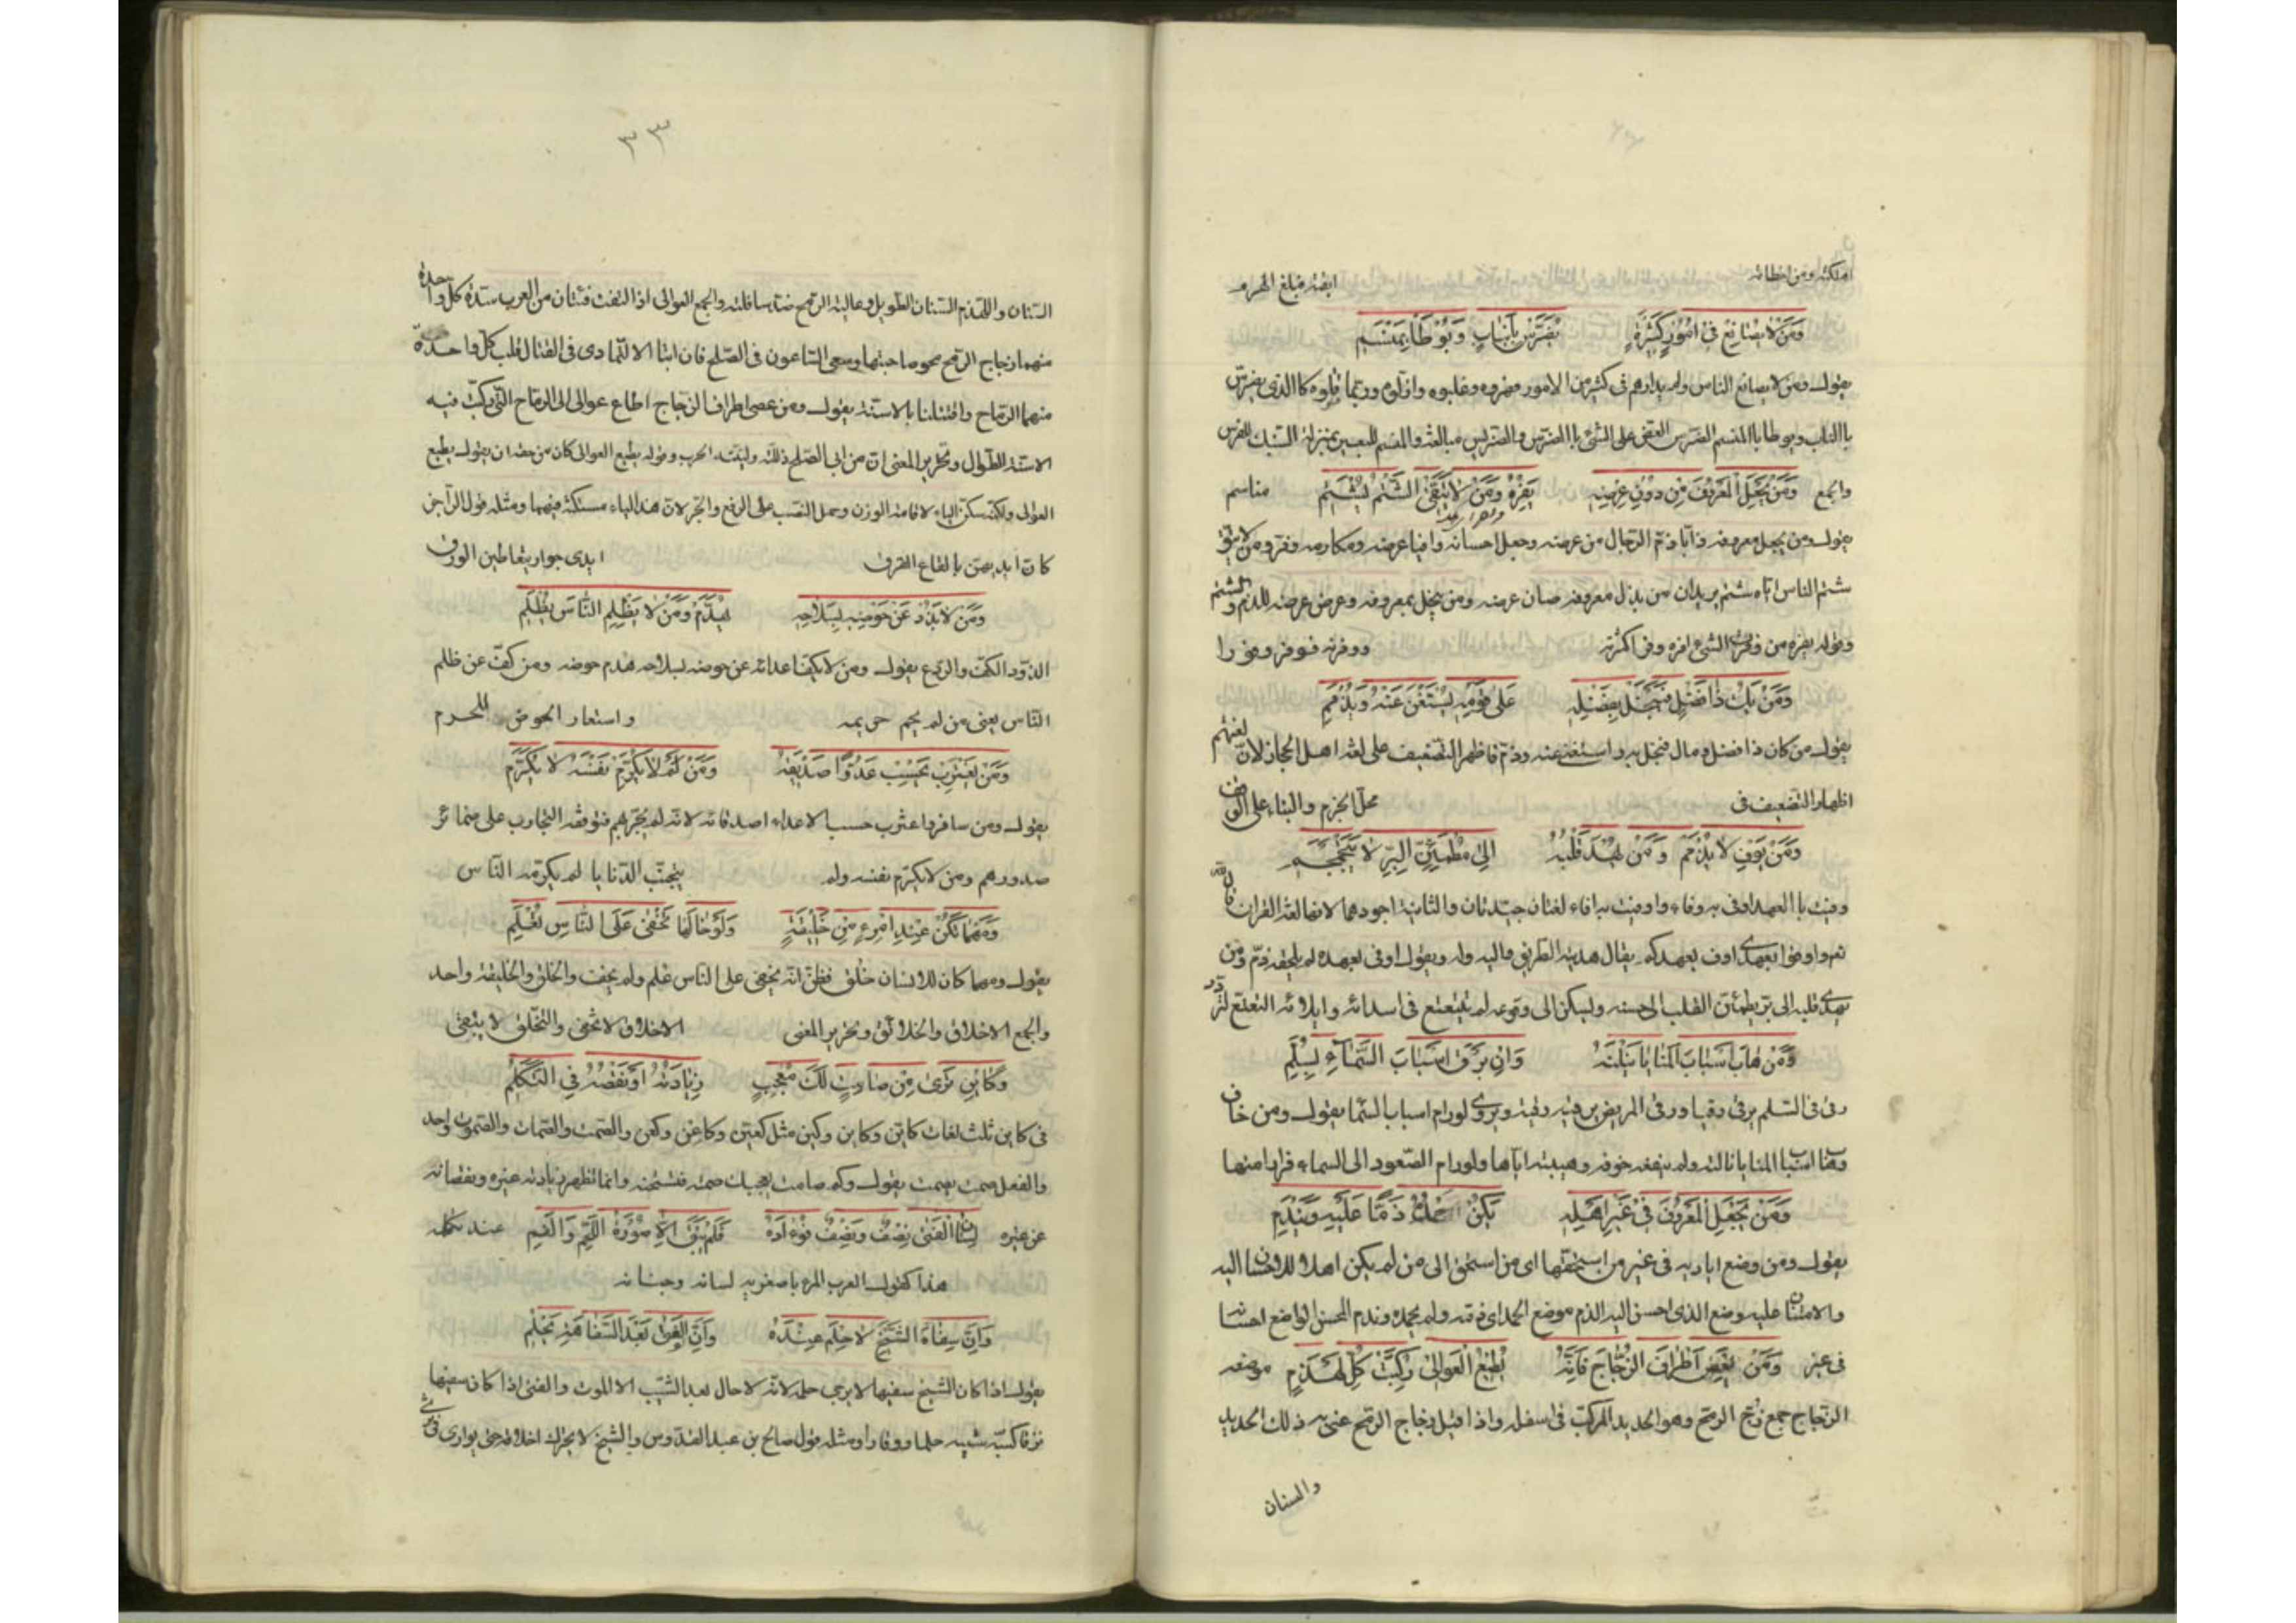 اهلكته ومن اخطاته ابقته فبلغ الهرم
وَمَنْ لا يصانِعْ في امُورٍ كَثيرَةٍ يُضَرَّسْ بِاَنْيابٍ وَيُوْطَأْ بِمَنْسِمِ
يقول ومن لا يصانع الناس ولم يدارهم في كثير من الامور قهروه وغلبوه واذلوه وربما قتلوه كا الذي يضرس
با الناب ويوطا با المنسم الضرس العض على الشئ با الضرس والتضريس مبالغة والمنسم للبعير بمنزلة السنبك للفرس
والجمع وَمَنْ يَجْعَلِ الْمَعْرُوفَ مِنْ دُوْنِ عِرْضِهِ يَفِرْهُ وَمَنْ لا يَتَّقِ الشَّتْمَ يُشْتَمِ مناسم
يقول ومن يجعل معروفه ذابا ذم الرجال عن عرضه وجعل احسانه واقيا عرضه ومكارمه وفر ومن لا يتق
شتم الناس اياه شتم يريد ان من بذل معروفه صان عرضه ومن بخل بمعروفه وعرض عرضه للذم والشتم
وقوله يفره من وفرت الشئ افره وفرا كثرته ووفرته فوفر وفورا
وَمَنْ يَكُ ذا فَضْلٍ فَيَبْخَلْ بِفَضْلِهِ عَلى قَوْمِهِ يُسْتَغْنَ عَنْهُ وَيُذْمَمِ
يقول من كان ذا فضل ومال فبخل به واستغنى عنه وذم فاظهر التضعيف على لغة اهل الحجاز لان لغتهم
اظهار التضعيف في محل الجزم والبناء على الوقف
وَمَنْ يُوفِ لا يُذْمَمْ وَمَنْ يُهْدَ قَلْبُهُ اِلى مُطْمَئِنِّ البِرِّ لا يَتَجَمْجَمِ
وفيت با العهد اوفى به وفاء واوفيت به ايفاء لغتان جيدتان والثانية اجودهما لانها لغة القران قال الله
تع واوفوا بعهدي اوف بعهدكم يقال هديته الطريق واليه وله ويقول اوفى بعهده لم يلحقه ذم ومن
يهدي قلبه الى بر يطمئن القلب الى حسنه وليسكن الى وقوعه لم يتتعتع في اسدائه وايلائه
وَمَنْ هابَ اَسْبابَ الْمَنايا يَنَلْنَهُ وَاِنْ يَرْقَ اسْبابَ السَّماءِ بِسُلَّمِ
رقى في السلم يرقى رقيا ورقى المريض يرقيه رقية ويروى لو رام اسباب السما يقول ومن خاف
وهاب اسباب المنايا نالته ولم ينفعه خوفه وهيبته اياها ولو رام الصعود الى السماء فرارا منها
وَمَنْ يَجْعَلِ الْمَعْرُوفَ في غَيْرِ اَهْلِهِ يَكُنْ حَمْدُهُ ذَمًّا عَلَيْهِ وَيَنْدَمِ
يقول ومن وضع اياديه في غير من استحقها اي من استحق الى من لم يكن اهلا للاحسان اليه
والامتنان عليه وضع الذي احسن اليه الذم موضع الحمد اي ذمه ولم يحمده وندم المحسن الواضع احسانه
في غير وَمَنْ يَعْصِ اَطْرافَ الزِّجاجِ فَاِنَّهُ يُطيعُ الْعَوالي رُكِّبَتْ كُلَّ لَهْذَمِ موضعه
الزجاج جمع زج الرمح وهو الحديد المركب في اسفله واذا قيل زجاج الرمح عنى به ذلك الحديد
والسنان
٣٣
السنان واللهذم السنان الطويل وعالية الرمح ضد سافلته والجمع العوالي اذا التقت فئتان من العرب سددت كل واحدة
منهما زجاج الرمح نحو صاحبتها وسعى الساعون في الصلح فان ابتا الا التمادي في القتال قلبت كل واحدة
منهما الرماح واقتتلتا بالاسنة يقول ومن عصى اطراف الزجاج اطاع عوالي الرماح التي ركبت فيه
الاسنة الطوال وتحرير المعنى ان من ابى الصلح ذللته ولينته الحرب وقوله يطيع العوالي كان من حقه ان يقول يطيع
العوالي ولكنه سكن الياء لاقامة الوزن وحمل النصب على الرفع والجر لان هذه الياء مسكنة فيهما ومثله قول الراجز
كان ايديهن بالقاع القرق ايدي جوار يتعاطين الورق
وَمَنْ لا يَذُدْ عَنْ حَوْضِهِ بِسِلاحِهِ يُهَدَّمْ وَمَنْ لا يَظْلِمِ النَّاسَ يُظْلَمِ
الذود الكف والردع يقول ومن لا يكف اعدائه عن حوضه بسلاحه هدم حوضه ومن كف عن ظلم
الناس يعني من لم يحم حريمه واستعار الحوض للحرم
وَمَنْ يَغْتَرِبْ يَحْسِبْ عَدُوًّا صَديقَهُ وَمَنْ لَمْ لا يُكَرِّمْ نَفْسَهُ لا يُكَرَّمِ
يقول ومن سافر واغترب حسب الاعداء اصدقائه لانه لم يجربهم فتوقفه التجارب على ضمائر
صدورهم ومن لا يكرم نفسه ولم يتجنب الدنايا لم يكرمه الناس
وَمَهْما تَكُنْ عِنْدَ امْرِءٍ مِنْ خَليقَةٍ وَلَوْ خالَها تَخْفى عَلَى النَّاسِ تُعْلَمِ
يقول ومهما كان للانسان خلق فظن انه يخفى على الناس علم ولم يخف والخلق والخليقة واحد
والجمع الاخلاق والخلائق وتحرير المعنى الاخلاق لا تخفى والتخلق لا يبقى
وَكائِنْ تَرى مِنْ صامِتٍ لَكَ مُعْجِبٍ زِيادَتُهُ اَوْ نَقْصُهُ في التَّكَلُّمِ
في كاين ثلث لغات كاين وكاين وكين مثل كعين وكاعن وكعن والصمت والصمات والصموت واحد
والفعل صمت يصمت يقول وكم صامت يعجبك صمته فتستحسنه وانما تظهر زيادته على غيره ونقصانه
عن غيره لِسانُ الْفَتى نِصْفٌ وَنِصْفٌ فُؤادُهُ فَلَمْ يَبْقَ اِلاَّ صُوْرَةُ اللَّحْمِ وَالدَّمِ عند تكلمه
هذا كقول العرب المرء باصغريه لسانه وجنانه
وَاِنَّ سِفاهَ الشَّيْخِ لا حِلْمَ عِنْدَهُ وَاِنَّ الْفَتى بَعْدَ السَّفاهَةِ يَحْلُمِ
يقول اذا كان الشيخ سفيها لا يرجى حلمه لانه لا حال بعد الشيب الا الموت والفتى اذا كان سفيها
نزقا كسبه شيبه حلما ووقارا ومثله قول صالح بن عبد القدوس والشيخ لا يترك اخلاقه حتى يوارى في ثرى